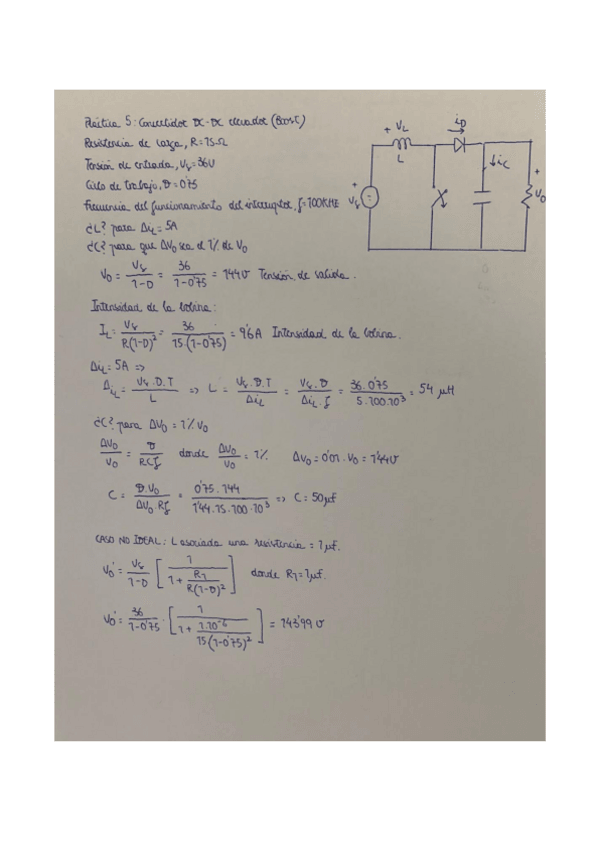 Práctica 5: Convertidor DC-DC elevador (BOOST)
Resistencia de carga, R=15Ω
Tensión de entrada, Vg=36V
Ciclo de trabajo, D=0'75
Frecuencia del funcionamiento del interruptor, f=100KHz
¿L? para ΔiL=5A
¿C? para que ΔVo sea el 1% de Vo
Vo = Vg / 1-D = 36 / 1-0'75 = 144V Tensión de salida.
Intensidad de la bobina:
IL = Vg / R(1-D)² = 36 / 15·(1-0'75) = 9'6A Intensidad de la bobina.
ΔiL=5A =>
ΔiL = Vg·D·T / L => L = Vg·D·T / ΔiL = Vg·D / ΔiL·f = 36·0'75 / 5·100·10³ = 54 μH
¿C? para ΔVo = 1% Vo
ΔVo / Vo = D / RCf donde ΔVo / Vo = 1% ΔVo = 0'01·Vo = 1'44V
C = D·Vo / ΔVo·Rf = 0'75·144 / 1'44·15·100·10³ => C = 50μf
CASO NO IDEAL: L asociada una resistencia = 1μf.
Vo' = Vg / 1-D [ 1 / 1 + R1 / R(1-D)² ] donde R1=1μf.
Vo' = 36 / 1-0'75 · [ 1 / 1 + 1·10⁻⁶ / 15(1-0'75)² ] = 143'99V
+ VL
L
iD
+
Vg
iC
+
Vo
-